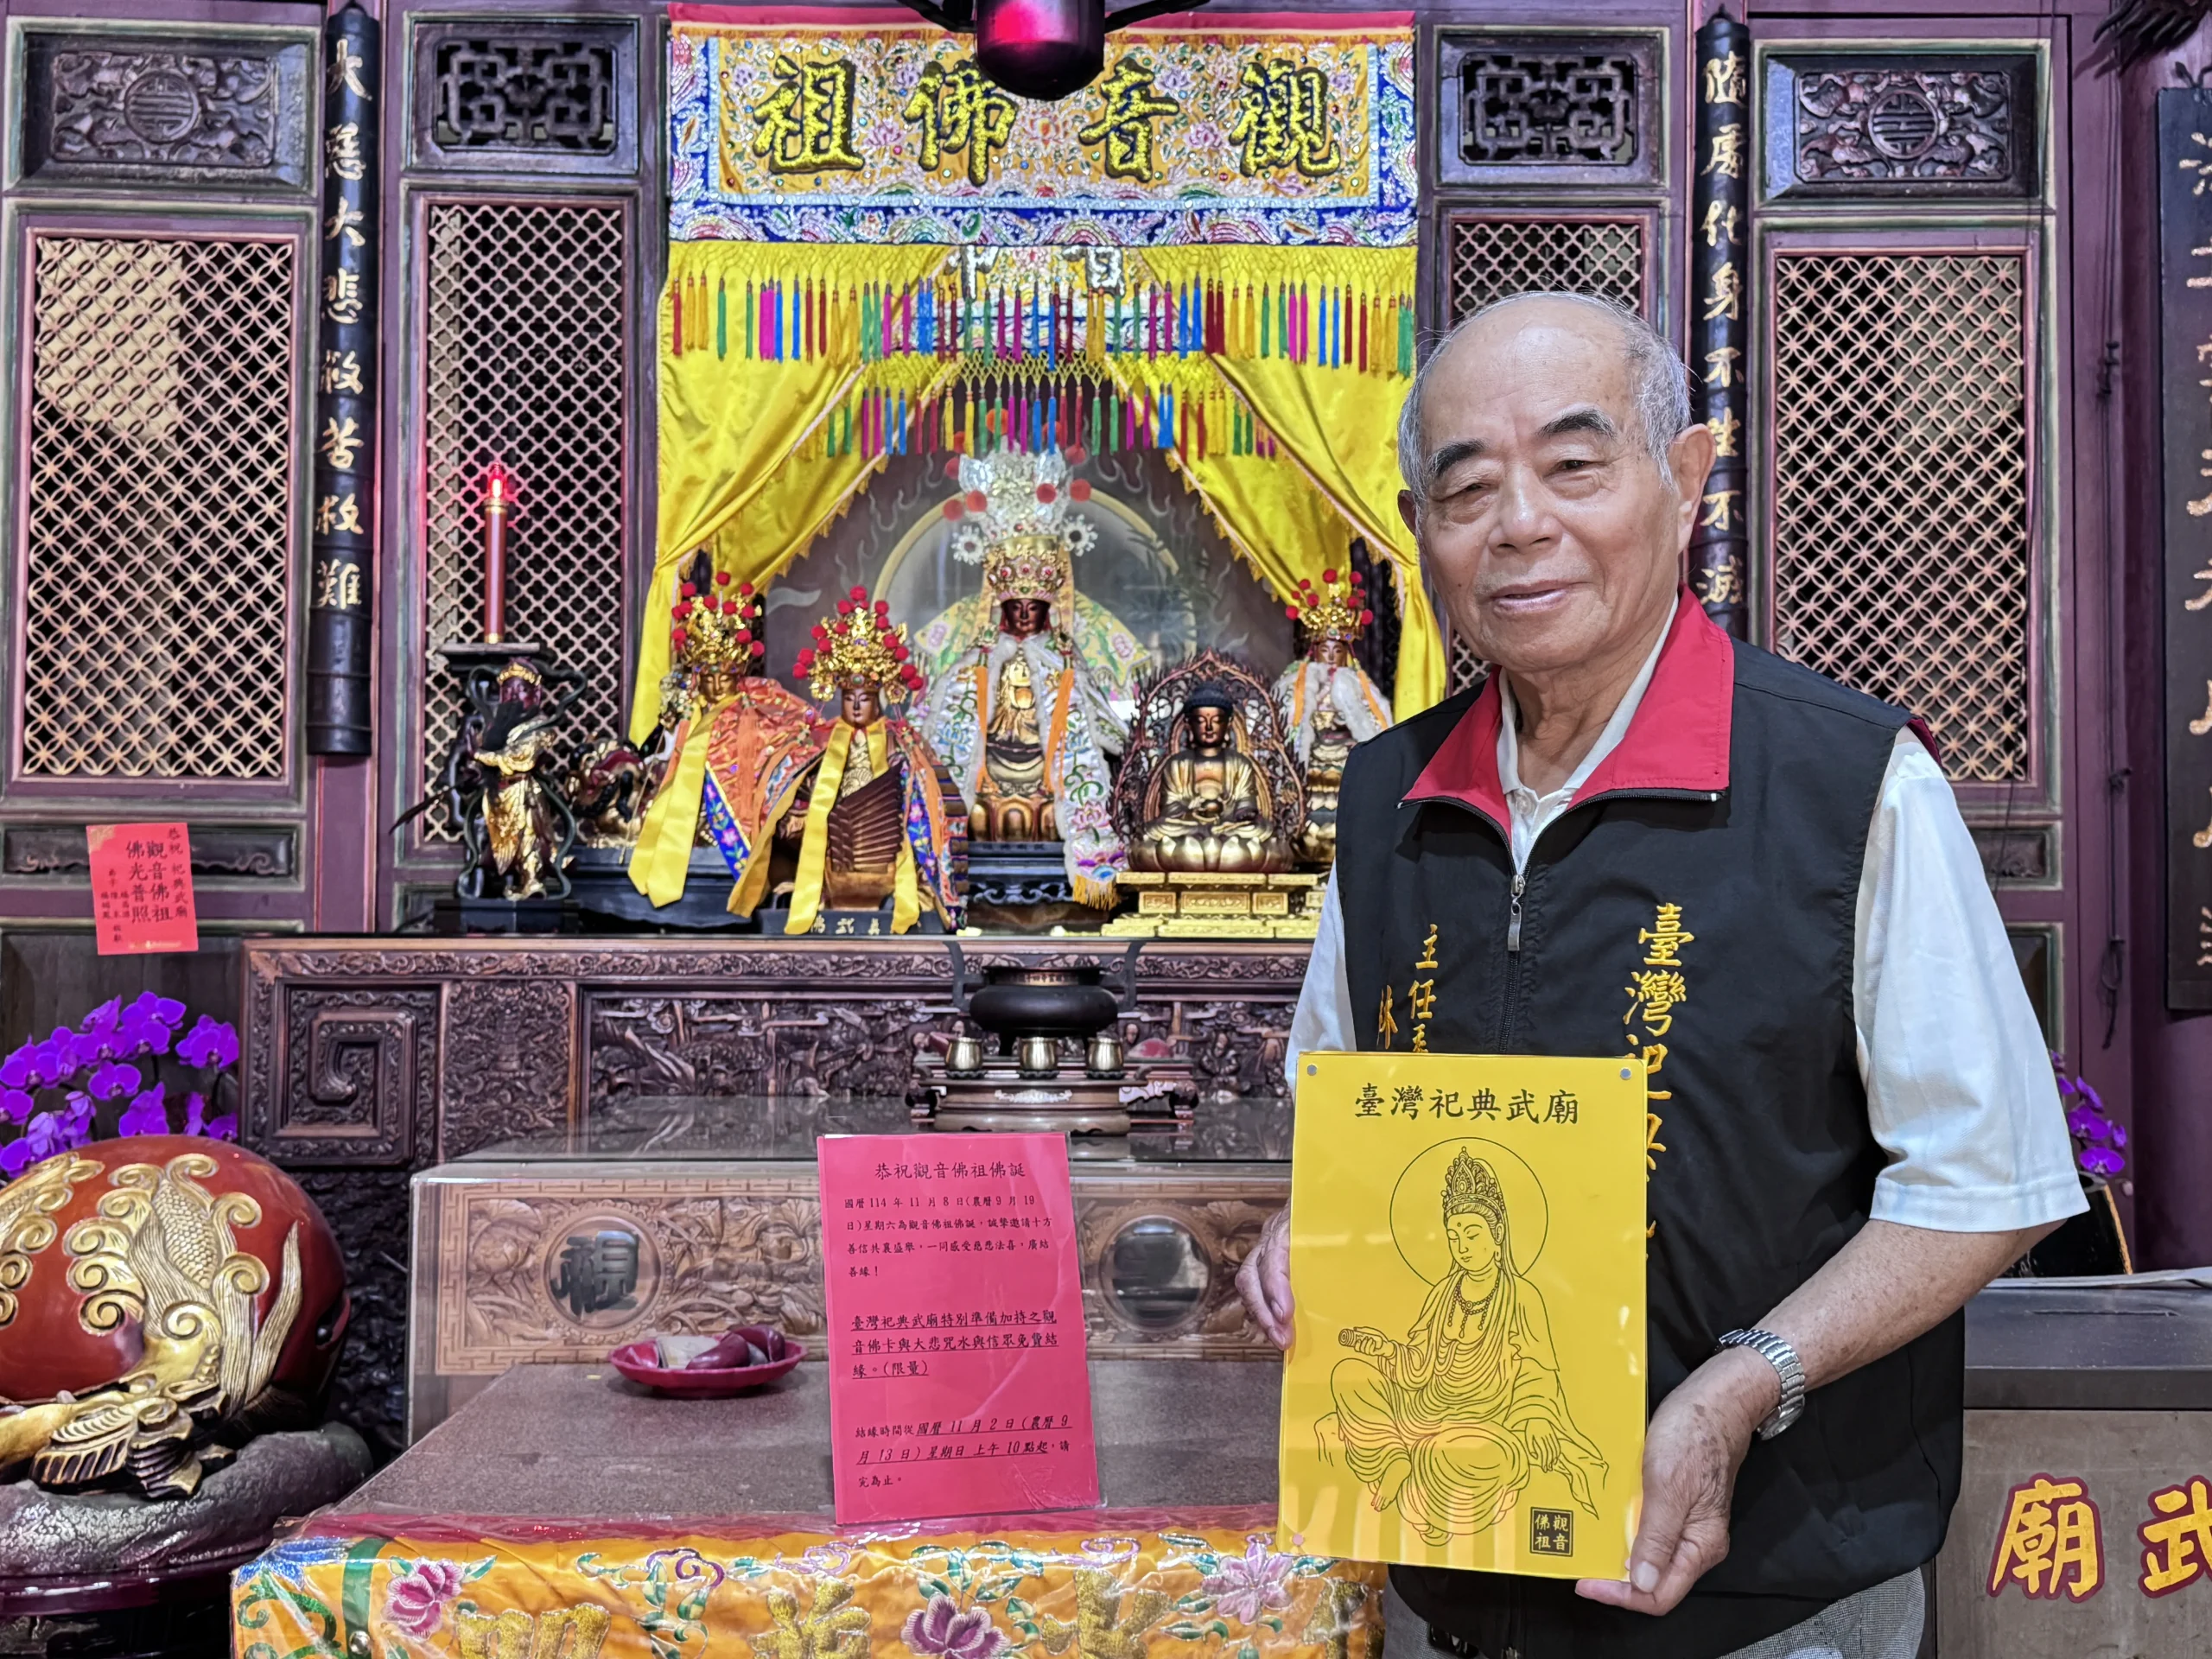 觀音佛祖
大慈大悲救苦救難
隨處化身不生不滅
恭祝 祀典武廟
觀音佛祖
佛光普照
恭祝觀音佛祖佛誕
國曆 114 年 11 月 8 日(農曆 9 月 19
日)星期六為觀音佛祖佛誕，誠摯邀請十方
善信共襄盛舉，一同感受慈悲法喜，廣結
善緣！
臺灣祀典武廟特別準備加持之觀
音佛卡與大悲咒水與信眾免費結
緣。(限量)
結緣時間從國曆 11 月 2 日(農曆 9
月 13 日)星期日 上午 10 點起，請
完為止。
主任委
林
臺灣祀典
臺灣祀典武廟
觀音
佛祖
福
武廟